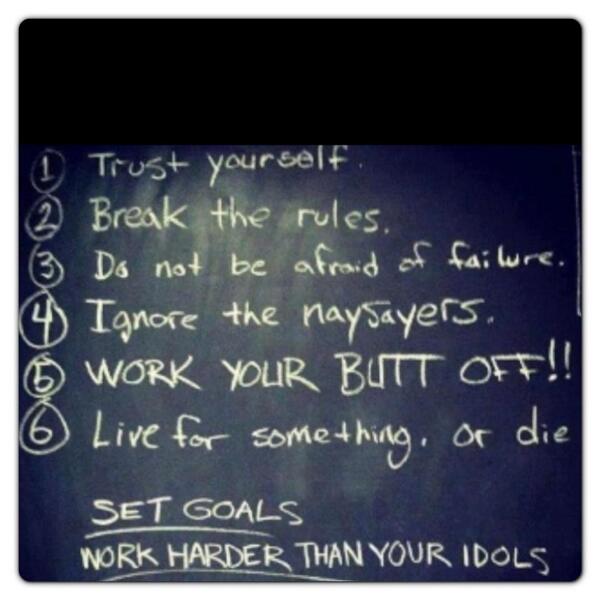 1 Trust yourself.
2 Break the rules.
3 Do not be afraid of failure.
4 Ignore the naysayers.
5 WORK YOUR BUTT OFF!!
6 Live for something. or die
SET GOALS
WORK HARDER THAN YOUR IDOLS